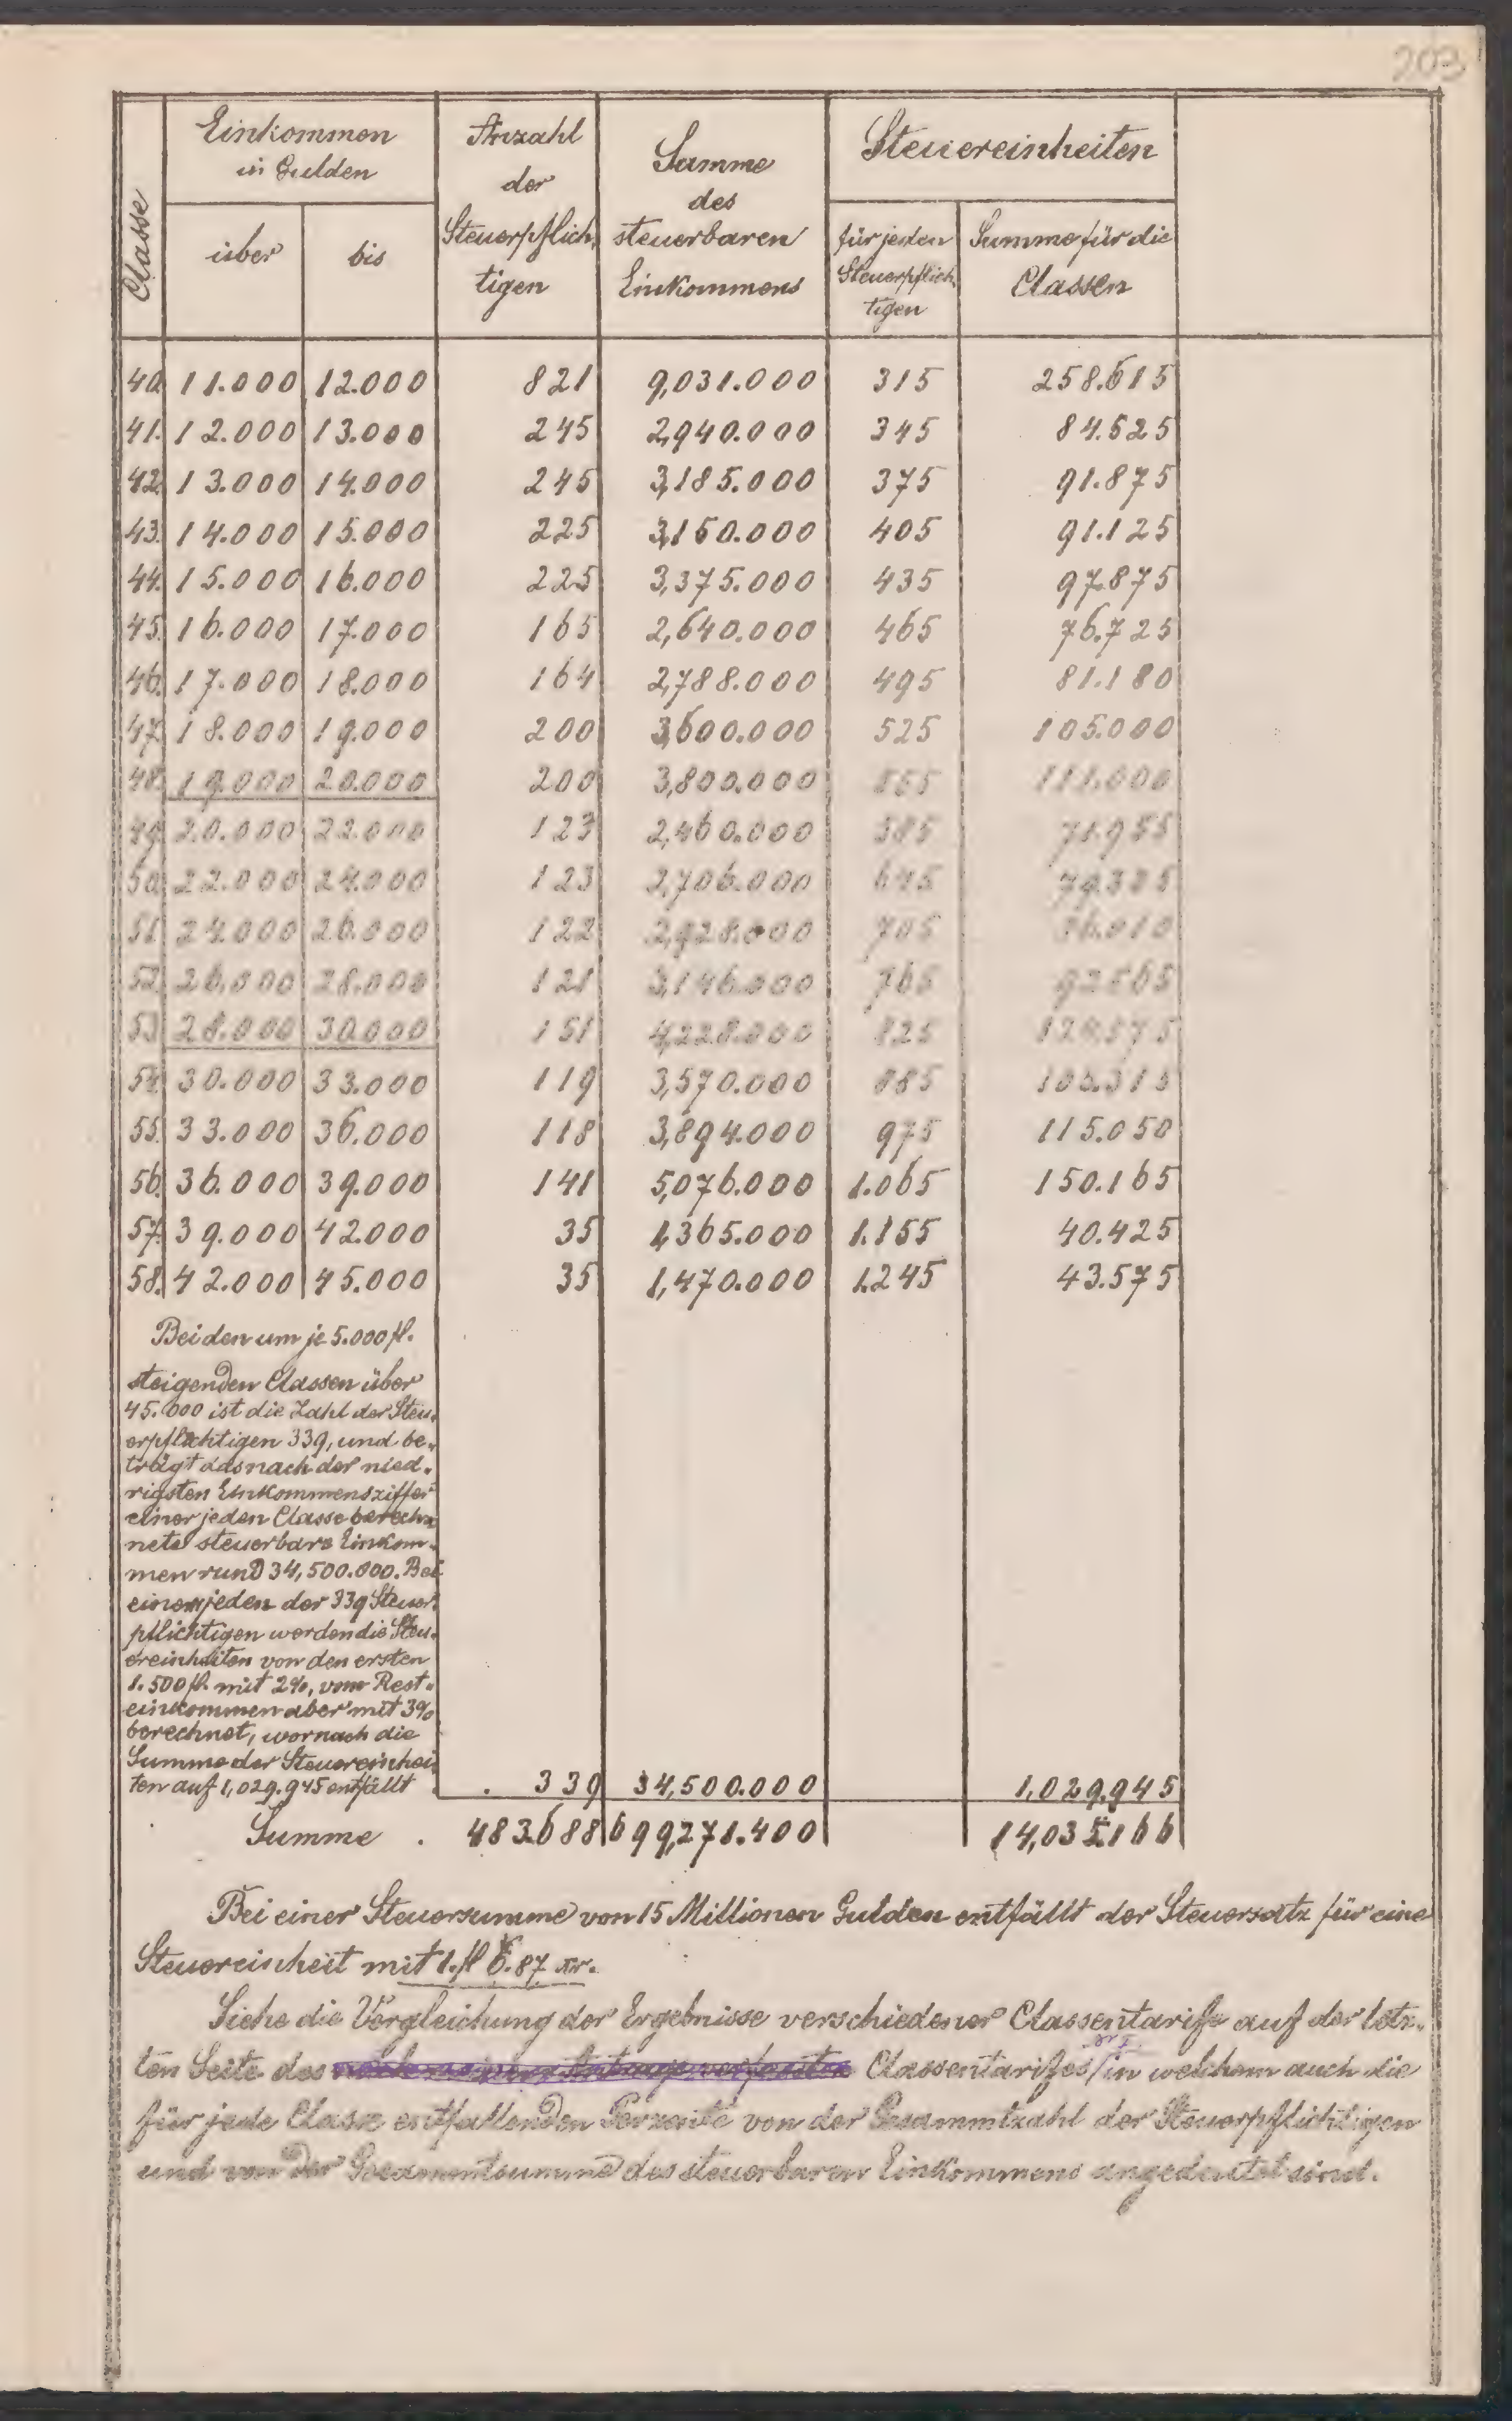 203
Classe
Einkommen
in Gulden
über
bis
Anzahl
der
Steuerpflich,
tigen
Summe
des
steuerbaren
Einkommens
Steuereinheiten
für jeden
Steuerpflich,
tigen
Summe für die
Classen
40. 11.000 12.000 821 9,031.000 315 258.615
41. 12.000 13.000 245 2,940.000 345 84.525
42. 13.000 14.000 245 3,185.000 375 91.875
43. 14.000 15.000 225 3,150.000 405 91.125
44. 15.000 16.000 225 3,375.000 435 97.875
45. 16.000 17.000 165 2,640.000 465 76.725
46. 17.000 18.000 164 2,788.000 495 81.180
47. 18.000 19.000 200 3,600.000 525 105.000
48. 19.000 20.000 200 3,800.000 555 111.000
49. 20.000 22.000 123 2,460.000 585 71.955
50. 22.000 24.000 123 2,706.000 645 79.335
51. 24.000 26.000 122 2,928.000 705 86.010
52. 26.000 28.000 121 3,146.000 765 92.565
53. 28.000 30.000 151 4,228.000 825 124.575
54. 30.000 33.000 119 3,570.000 885 105.315
55. 33.000 36.000 118 3,894.000 975 115.050
56. 36.000 39.000 141 5,076.000 1.065 150.165
57. 39.000 42.000 35 1,365.000 1.155 40.425
58. 42.000 45.000 35 1,470.000 1.245 43.575
Bei den um je 5.000 fl.
steigenden Classen über
45.000 ist die Zahl der Steu,
erpflichtigen 339, und be„
trägt das nach der nied„
rigsten Einkommensziffer
einer jeden Classe berech„
nete steuerbare Einkom„
men rund 34,500.000. Bei
einem jeden der 339 Steuer,
pflichtigen werden die Steu„
ereinheiten von den ersten
1.500 fl. mit 2%, vom Rest„
einkommen aber mit 3%
berechnet, wornach die
Summe der Steuereinhei
ten auf 1,029.945 entfällt . . 339 34,500.000 1,029.945
Summe . 483.688 699,271.400 14,035.166
Bei einer Steuersumme von 15 Millionen Gulden entfällt der Steuersatz für eine
Steuereinheit mit 1. fl 6.87 kr.
Siehe die Vergleichung der Ergebnisse verschiedener Classentarife auf der letz„
ten Seite des Classentarifes / in welchem auch die
für jede Classe entfallenden Perzente von der Gesammtzahl der Steuerpflichtigen
und von der Gesammtsumme des steuerbaren Einkommens angedeutet sind.